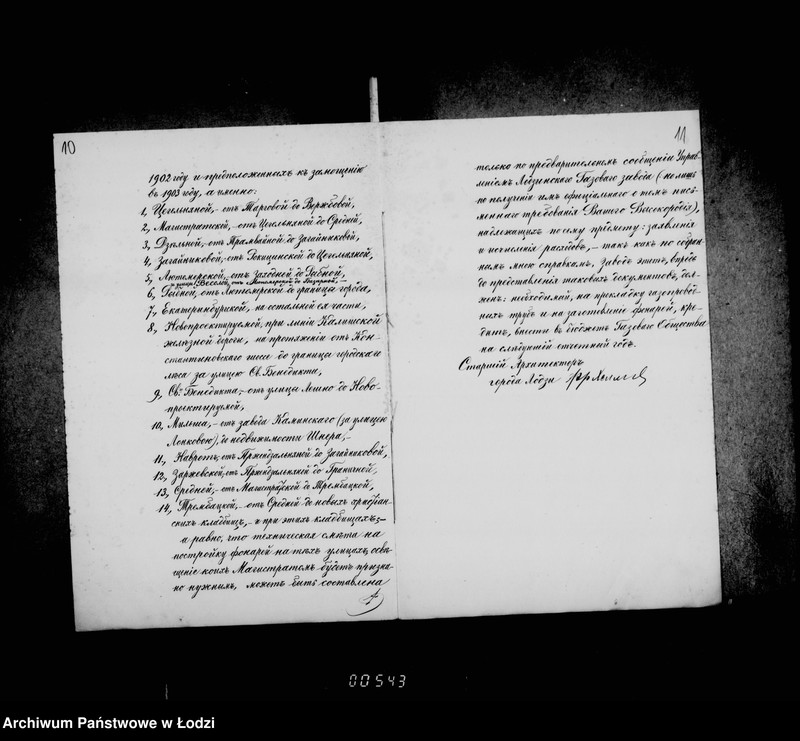 10
1902 году и предположенныхъ къ замощенію
въ 1903 году, а именно:
1, Цегельняной,- отъ Тарговой до Вержбовой,
2, Магистратской,- отъ Цегельняной до Средней,
3, Дзѣльной,- отъ Трамвайной до Загайниковой,
4, Загайниковой,- отъ Рокицинской до Цегельняной,
5, Лютомерской,- отъ Заходней до Гзбной,
и улицы Веселой, отъ
6, отъ Лютомерской до границы города,
7, Екатеринбургской, на остальной ея части,
8, Новопроектируемой, при линіи Калишской
желѣзной дороги, на протяженіи отъ Кон-
стантиновскаго шоссе до границы городскаго
лѣса за улицею Св. Бенедикта,
9, Св. Бенедикта,- отъ улицы Лешно до Ново-
проектируемой,
10, Мильша,- отъ завода Каминскаго (за улицею
Лонковою), до недвижимости Шпера,-
11, Навротъ,- отъ Пржендзальняной до Загайниковой,
12, Заржевской,- отъ Пржендзальняной до Граничной,
13, Средней,- отъ Магистратской до Трембацкой,
14, Трембацкой,- отъ Средней до новыхъ христіан-
скихъ кладбищъ,- и при этихъ кладбищахъ;-
а равно, что техническая смѣта на
постройку фонарей на тѣхъ улицахъ, освѣ-
щеніе коихъ Магистратомъ будетъ призна-
но нужнымъ, можетъ быть составлена
11
только по предварительномъ сообщеніи Управ-
леніемъ Лодзинскаго Газоваго завода (по лишь
по полученіи имъ официального о томъ пись-
меннаго требованія Вашего Высокородія),
надлежащихъ по сему предмету: заявленія
и исчисленія расходовъ,- такъ какъ по собран-
нымъ мною справкамъ, заводъ этотъ, впредь
до представленія таковыхъ документовъ, дол-
женъ: необходимый, на прокладку газопровод-
ныхъ трубъ и на заготовленіе фонарей, кре-
дитъ, внести въ бюджетъ Газоваго Общества
на слѣдующій отчетный годъ.
Старшій Архитекторъ
города Лодзи
00543
Archiwum Państwowe w Łodzi